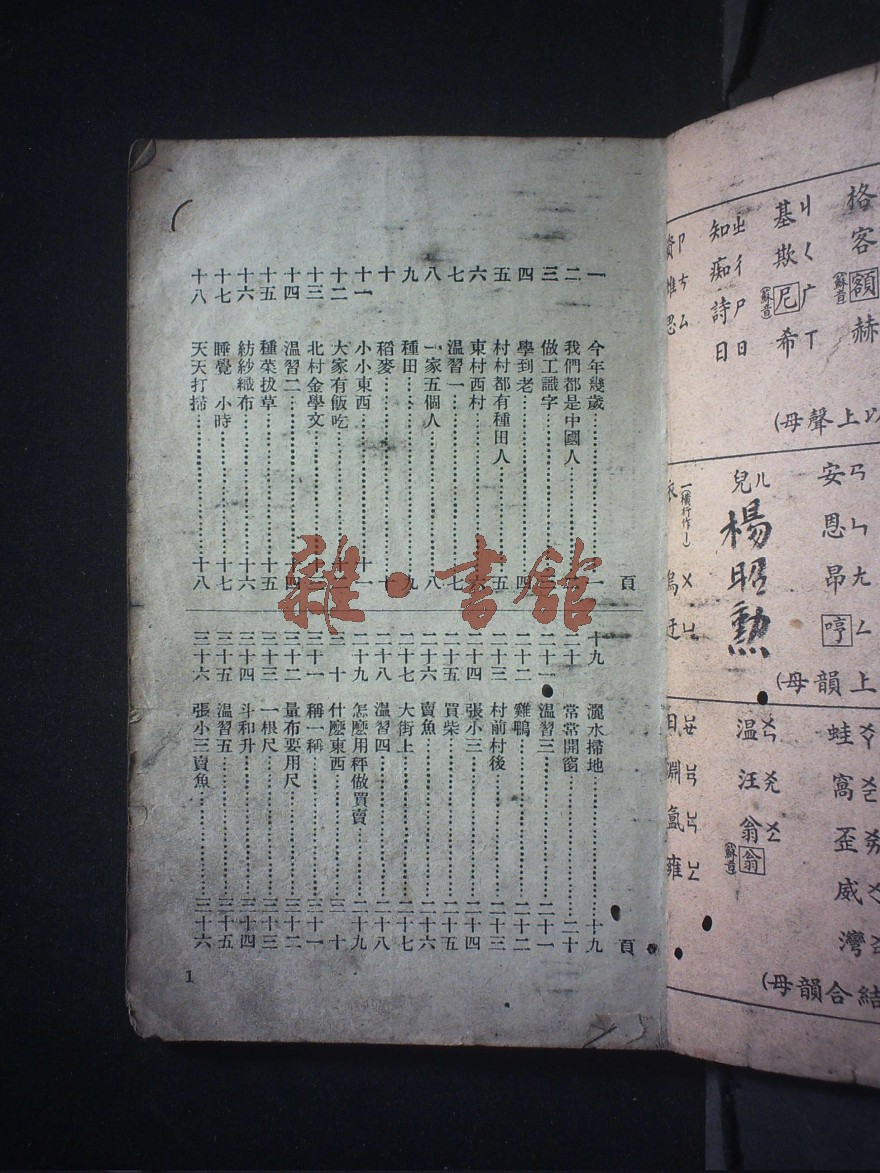 格客額蘇音赫
ㄐㄑㄬㄒ
基欺尼蘇音希
ㄓㄔㄕㄖ
知痴詩日
ㄗㄘㄙ
以上聲母)
ㄢㄣㄤㄥ
安恩昂哼
ㄦ
兒
楊昭勲
一(橫行作丨) ㄨㄩ
上韻母)
ㄨㄚㄨㄛㄨㄞㄨㄟㄨㄢ
蛙窩歪威灣
ㄨㄣㄨㄤㄨㄥ
温汪翁翁蘇音
ㄩㄝㄩㄢㄩㄣㄩㄥ
結合韻母)
頁
一 今年幾歲 一
二 我們都是中國人 二
三 做工識字 三
四 學到老 四
五 村村都有種田人 五
六 東村西村 六
七 温習一 七
八 一家五個人 八
九 種田 九
十 稻麥 十
十一 小小東西 十一
十二 大家有飯吃 十二
十三 北村金學文 十三
十四 温習二 十四
十五 種菜拔草 十五
十六 紡紗織布 十六
十七 睡覺 小時 十七
十八 天天打掃 十八
頁
十九 灑水掃地 十九
二十 常常開窗 二十
二十一 温習三 二十一
二十二 雞鴨 二十二
二十三 村前村後 二十三
二十四 張小三 二十四
二十五 買柴 二十五
二十六 賣魚 二十六
二十七 大街上 二十七
二十八 温習四 二十八
二十九 怎麼用秤做買賣 二十九
三十 什麼東西 三十
三十一 稱一稱 三十一
三十二 量布要用尺 三十二
三十三 一根尺 三十三
三十四 斗和升 三十四
三十五 温習五 三十五
三十六 張小三賣魚 三十六
1
雜·書館